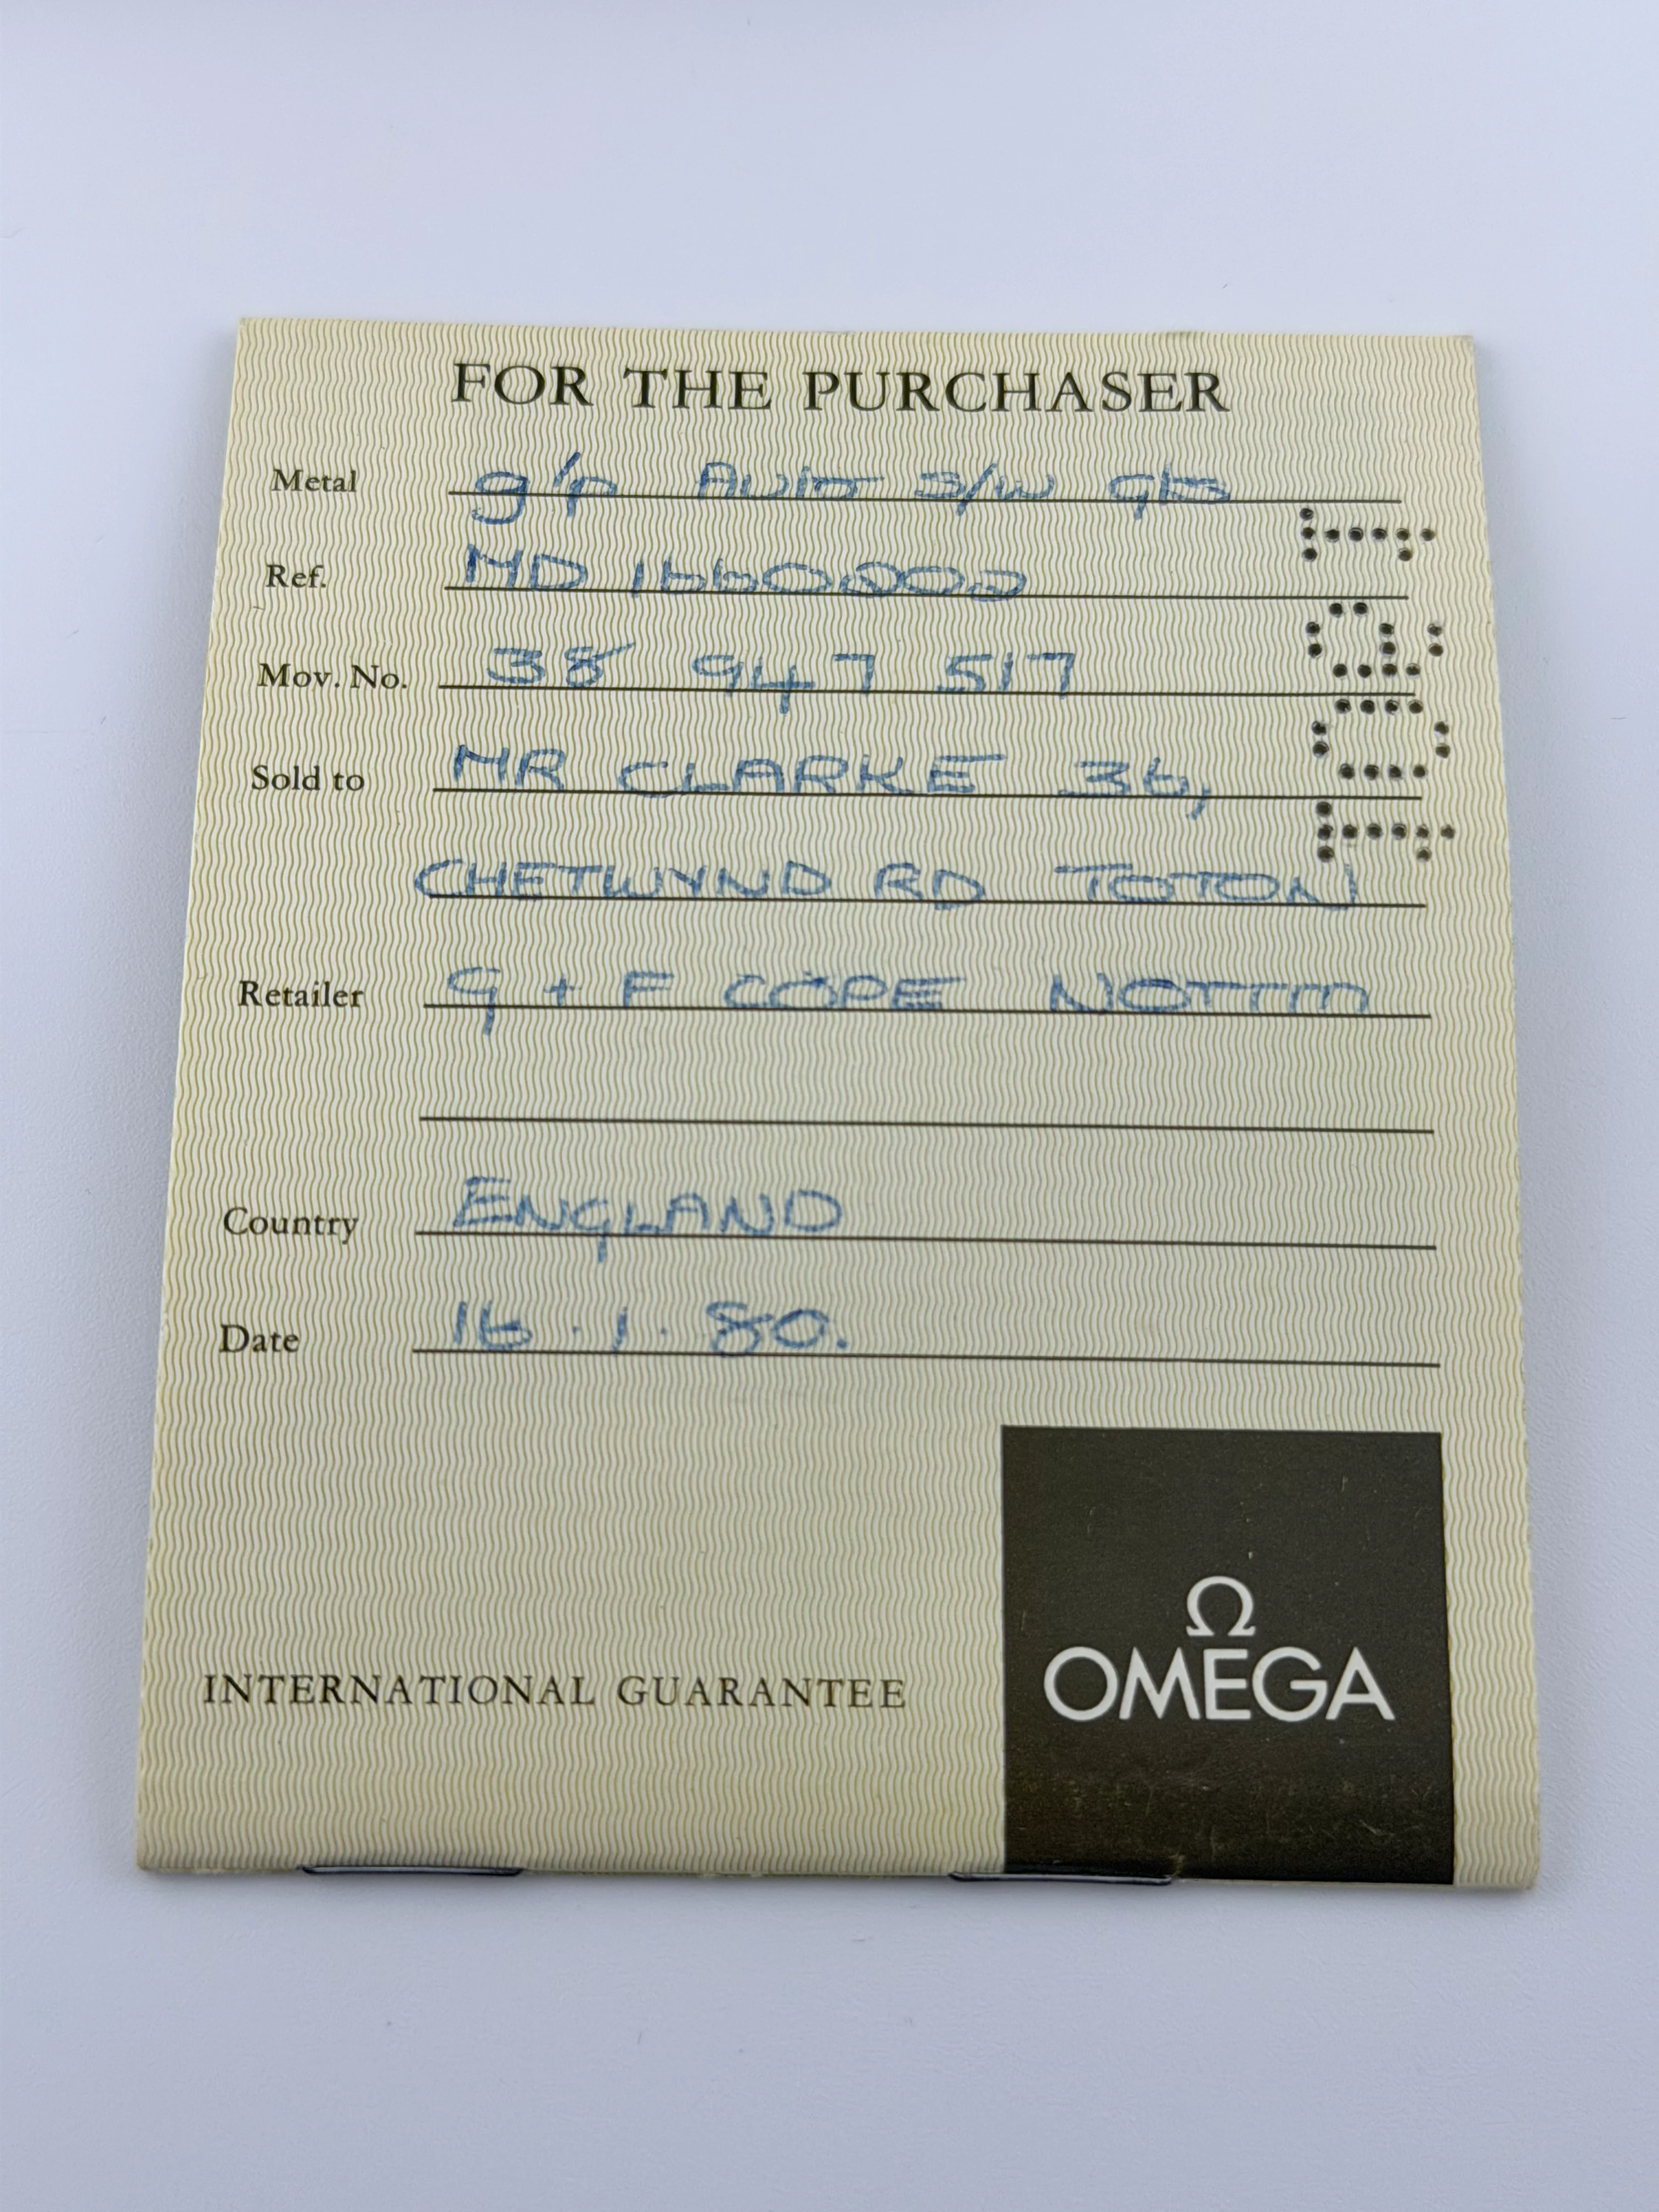 FOR THE PURCHASER
Metal g/p Auto s/w gts
Ref. MD 1660202
Mov. No. 38 947 517
Sold to MR CLARKE 36,
CHETWYND RD TOTON
Retailer G + F COPE NOTTM
Country ENGLAND
Date 16.1.80.
Ω
OMEGA
INTERNATIONAL GUARANTEE